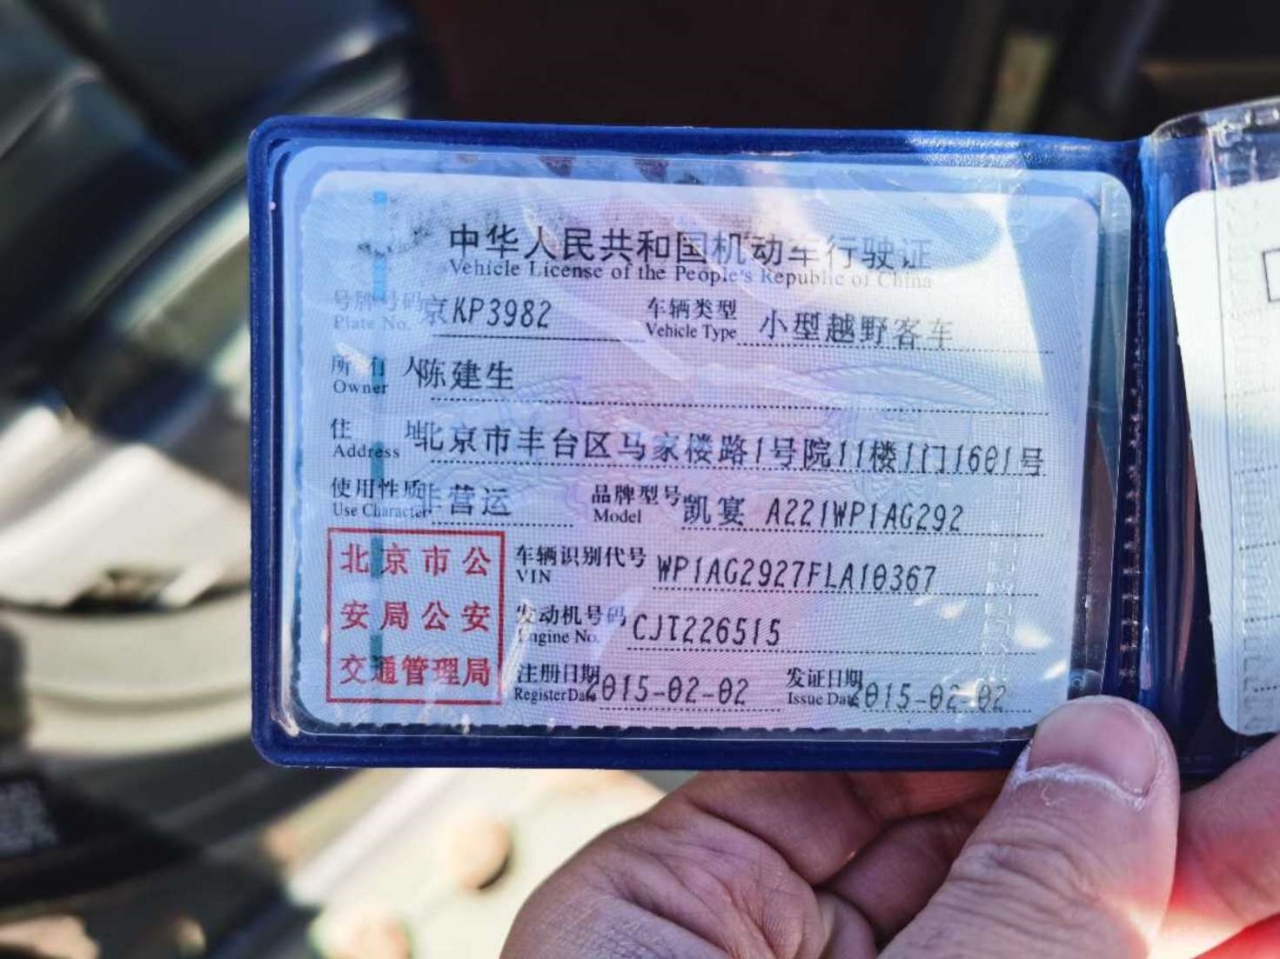 中华人民共和国机动车行驶证
Vehicle License of the People's Republic of China
号牌号码 京KP3982 车辆类型 小型越野客车
Plate No. Vehicle Type
所有人 陈建生
Owner
住址 北京市丰台区马家楼路1号院11楼1门1601号
Address
使用性质 非营运 品牌型号 凯宴 A221WP1AG292
Use Character Model
北京市公
安局公安
交通管理局
车辆识别代号 WP1AG2927FLA10367
VIN
发动机号码 CJT226515
Engine No.
注册日期 2015-02-02 发证日期 2015-02-02
Register Date Issue Date